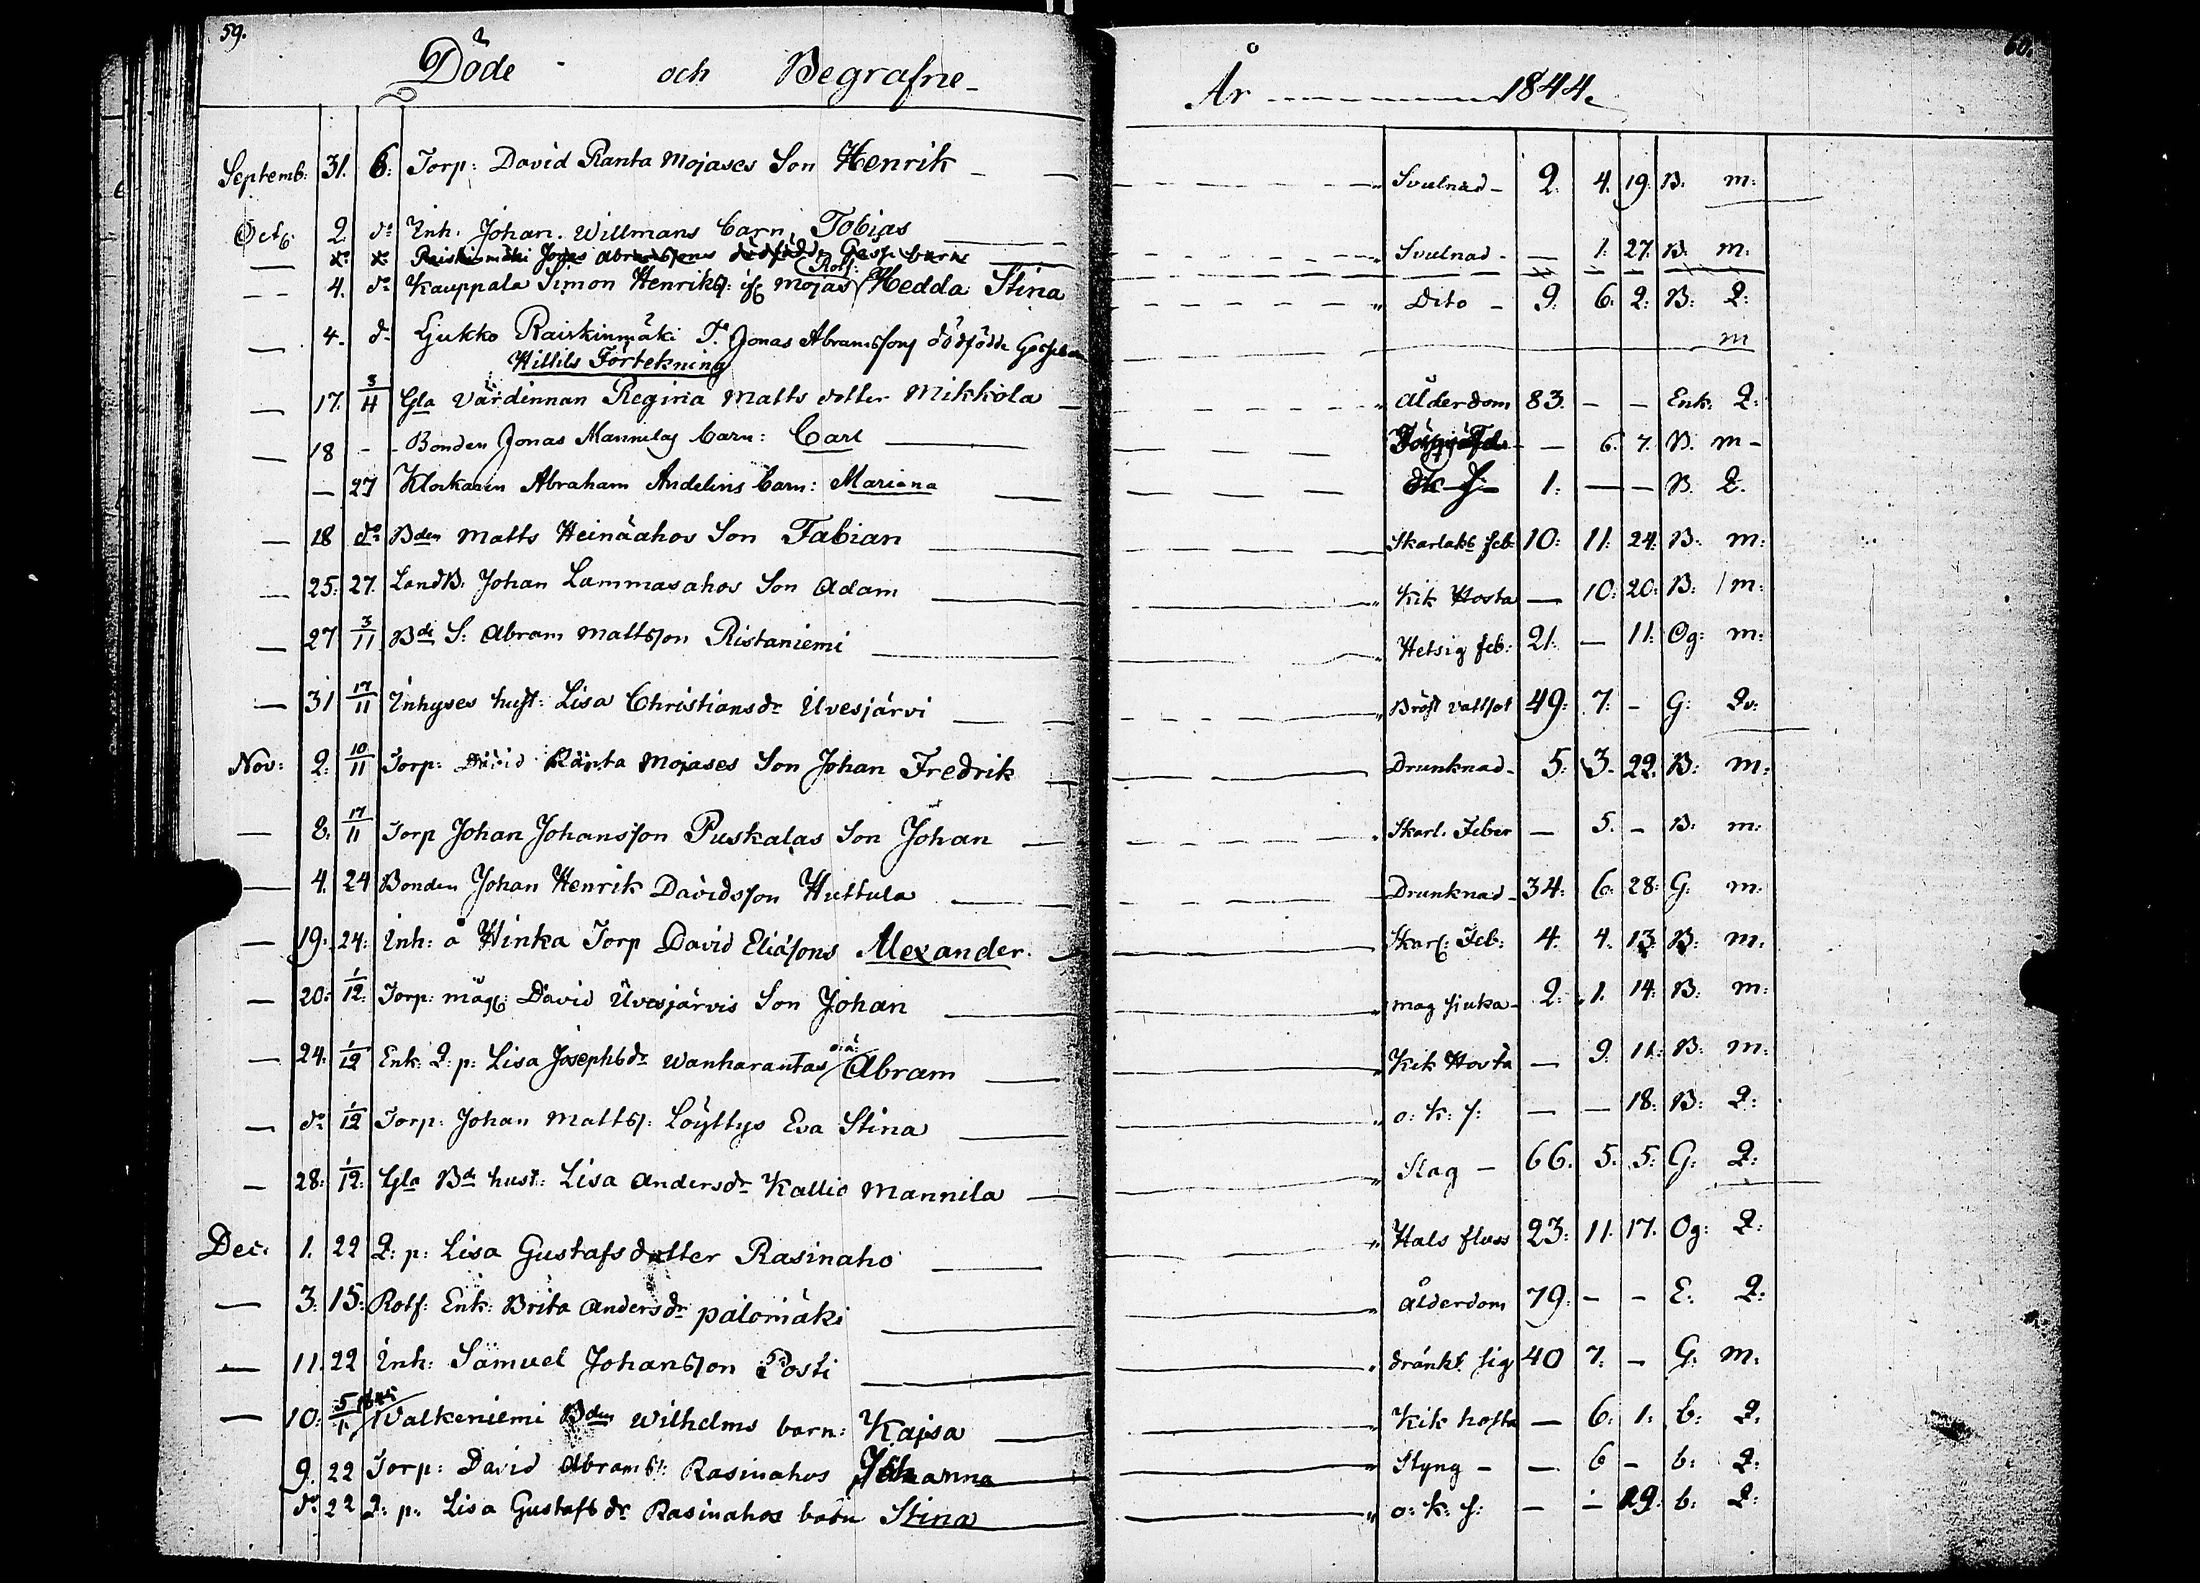 59.
Döde och Begrafne
År 1844.
60.
Septemb: 31. 6. Torp: David Ranta Mojases Son Henrik — Svulnad — 2. 4. 19. B. m:
Octb. 2. do Inh. Johan Willmans barn, Tobias — Svulnad — — 1. 27. B. m:
— do do Raiskinmäki Jonas Abramssons dödfödde Gosse barn
— 4. do Kauppala Simon Henriks: Mojas Rotf: Hedda Stina — Dito — 9. 6. 2. B. Q:
— 4. do Ljukko Raiskinmäki T. Jonas Abramssons dödfödde Gossebarn — m
Hittils Förtekning
— 17. 3/11 Gla värdinnan Regina Matts dotter Mikkola — Ålderdom 83. — — Enk: Q:
— 18 — Bonden Jonas Mannilas barn: Carl — — 6. 7. B. m —
— 27 Klockaren Abraham Andelins barn: Mariana — 1. — — B. Q.
— 18 do Bden Matts Heinäahos Son Fabian — Skarlaks feb: 10: 11: 24: B: m:
— 25: 27. LandB: Johan Lammasahos Son Adam — Kik Hosta — 10: 20: B: m:
— 27 3/11 Bde S: Abram Mattsson Ristaniemi — Hetsig feb: 21. — 11: Og: m:
— 31 17/11 Inhyses hust: Lisa Christiansdr Uvesjärvi — Bröst vattsot 49: 7: — G: Qv:
Nov: 2: 10/11 Torp: David Ranta Mojases Son Johan Fredrik — Drunknad — 5: 3. 22. B: m:
— 8. 17/11 Torp Johan Johansson Puskalas Son Johan — Skarl. Feber — 5. — B: m:
— 4. 24 Bonden Johan Henrik Davidsson Huttula — Drunknad — 34: 6. 28: G: m:
— 19. 24: Inh: å Hinka Torp David Eliasons Alexander. — Skarl: Feb: 4. 4. 13. B. m.
— 20: 1/12: Torp: mågs: David Uvesjärvis Son Johan — mag sjuka — 2: 1. 14: B: m:
— 24: 1/12 Enk: Q: p: Lisa Josephsdr Wanharantas oä: Abram — Kik Hosta — 9: 11: B: m:
— do 1/12 Torp: Johan Matts: Löyttys Eva Stina — o: k: s: — — 18: B: Q:
— 28: 1/12: Gla Bd hust: Lisa Andersdr Kallio Mannila — Slag — 66. 5. 5: G: Q:
Dec: 1. 22 Q: p: Lisa Gustafsdotter Rasinaho — Hals fluss 23: 11. 17. Og: Q:
— 3: 15: Rotf: Enk: Brita Andersdr Palomäki — ålderdom 79: — — E. Q:
— 11. 22 Inh: Samuel Johansson Posti — dränkt sig 40 7: — G: m:
— 10: 5/1 1845 Valkeniemi Bden Wilhelms barn: Kajsa — Kik hosta — 6: 1: b: Q.
9. 22 Torp: David Abrams: Rasinahos Johanna — Styng — — 6 — b: Q:
do 22 Q: p: Lisa Gustafsdr Rasinahos barn Stina — o: k: s: — — 29: b: Q: